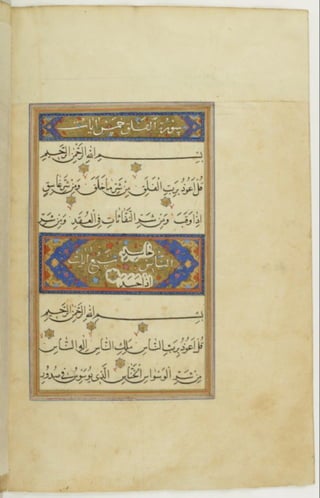 سورة الفلق خمس ايات
بِسْمِ اللهِ الرَّحْمٰنِ الرَّحِيمِ
قُلْ اَعُوذُ بِرَبِّ الْفَلَقِ مِنْ شَرِّ مَا خَلَقَ وَمِنْ شَرِّ غَاسِقٍ
اِذَا وَقَبَ وَمِنْ شَرِّ النَّفَّاثَاتِ فِي الْعُقَدِ وَمِنْ شَرِّ
حَاسِدٍ
الناس ايات
اِذَا حَسَدَ
بِسْمِ اللهِ الرَّحْمٰنِ الرَّحِيمِ
قُلْ اَعُوذُ بِرَبِّ النَّاسِ مَلِكِ النَّاسِ اِلٰهِ النَّاسِ
مِنْ شَرِّ الْوَسْوَاسِ الْخَنَّاسِ الَّذِي يُوَسْوِسُ فِي صُدُورِ